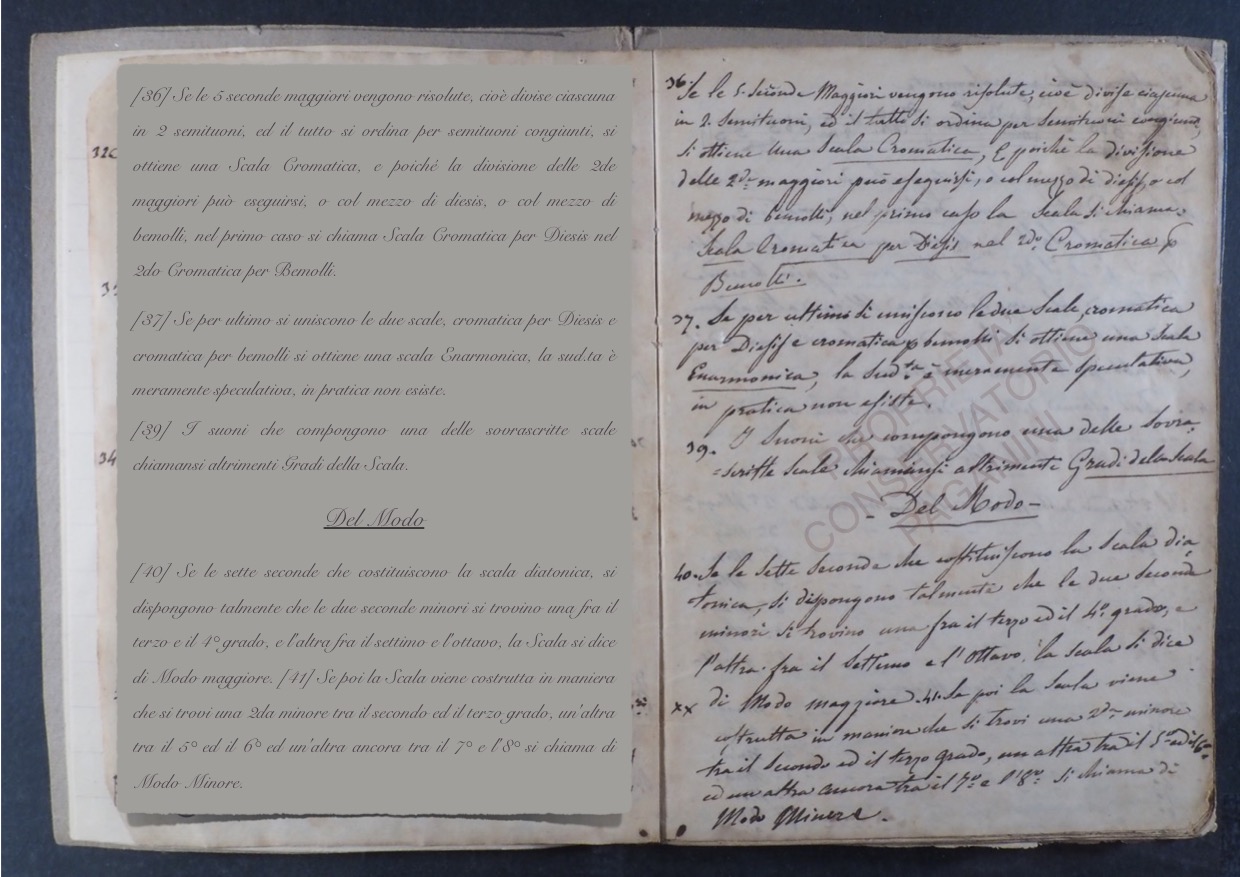 [36] Se le 5 seconde maggiori vengono risolute, cioè divise ciascuna
in 2 semituoni, ed il tutto si ordina per semituoni congiunti, si
ottiene una Scala Cromatica, e poiché la divisione delle 2de
maggiori può eseguirsi, o col mezzo di diesis, o col mezzo di
bemolli, nel primo caso si chiama Scala Cromatica per Diesis nel
2do Cromatica per Bemolli.
[37] Se per ultimo si uniscono le due scale, cromatica per Diesis e
cromatica per bemolli si ottiene una scala Enarmonica, la sud.ta è
meramente speculativa, in pratica non esiste.
[39] I suoni che compongono una delle sovrascritte scale
chiamansi altrimenti Gradi della Scala.
Del Modo
[40] Se le sette seconde che costituiscono la scala diatonica, si
dispongono talmente che le due seconde minori si trovino una fra il
terzo e il 4° grado, e l'altra fra il settimo e l'ottavo, la Scala si dice
di Modo maggiore. [41] Se poi la Scala viene costrutta in maniera
che si trovi una 2da minore tra il secondo ed il terzo grado, un'altra
tra il 5° ed il 6° ed un'altra ancora tra il 7° e l'8° si chiama di
Modo Minore.
34
36 Se le 5 Seconde Maggiori vengono risolute, cioè divise ciascuna
in 2. Semituoni, ed il tutto si ordina per semituoni congiunti,
si ottiene una Scala Cromatica, E poichè la divisione
delle 2de maggiori può eseguirsi, o col mezzo di diesis, o col
mezzo di bemolli, nel primo caso la Scala si chiama
Scala Cromatica per Diesis nel 2do Cromatica p
Bemolli.
37. Se per ultimo si uniscono le due Scale, cromatica
per Diesis e cromatica p bemolli si ottiene una Scala
Enarmonica, la sud.ta è meramente speculativa,
in pratica non esiste.
39. I Suoni che compongono una delle sovra=
=scritte Scale chiamansi altrimenti Gradi della Scala
- Del Modo -
40. Se le Sette Seconde che costituiscono la Scala dia=
tonica, si dispongono talmente che le due Seconde
minori si trovino una fra il terzo ed il 4° grado, e
l'altra fra il Settimo e l'Ottavo, la Scala si dice
xx di Modo maggiore. 41. Se poi la Scala viene
costrutta in maniera che si trovi una 2da minore
tra il Secondo ed il terzo grado, un altra tra il 5° ed il 6°
ed un altra ancora tra il 7° e l'8° si chiama di
Modo Minore.
PROPRIETÀ
CONSERVATORIO
PAGANINI